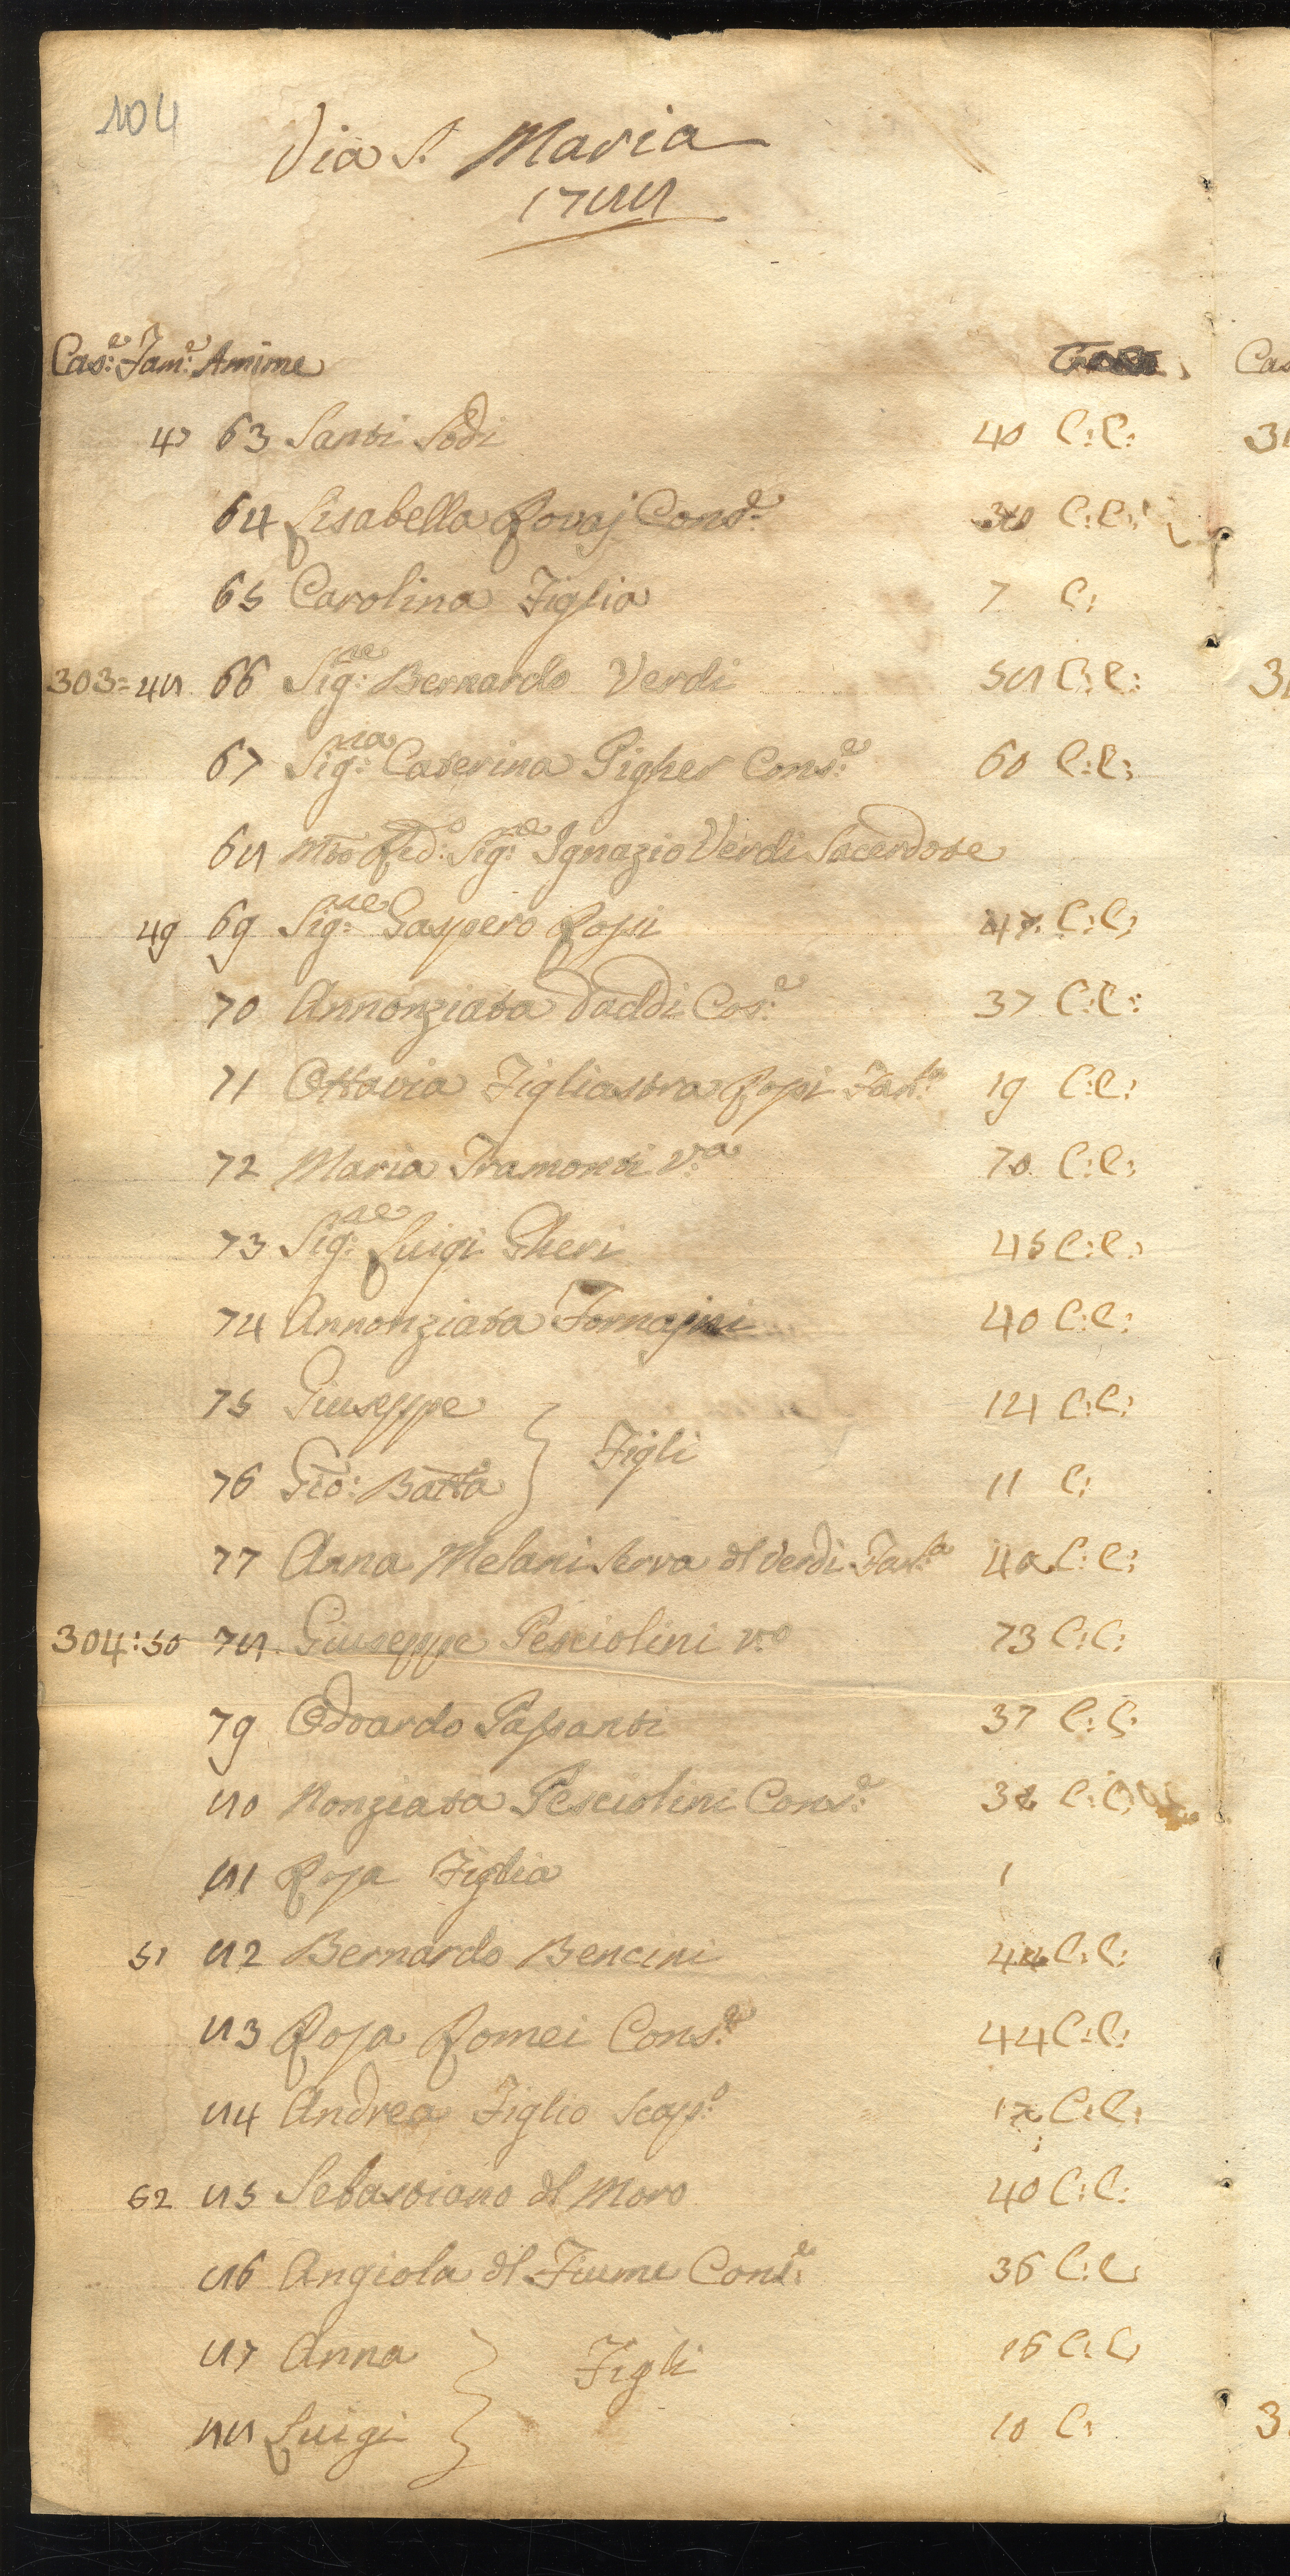 104
Via S. Maria
1788
Cas:e Fam:e Anime
Cas
47 63 Santi Sodi 40 C: C:
64 Lisabella Rovaj Cons:e C: C:
65 Carolina Figlia 7 C:
303= 48 66 Sig:re Bernardo Verdi 58 C: C:
67 Sig:ra Caterina Pigher Cons:e 60 C: C:
68 Mto Red:o Sig:re Ignazio Verdi Sacerdote
49 69 Sig:re Gaspero Rossi 47. C: C:
70 Annonziata Daddi Cos:e 37 C: C:
71 Ottavia Figliastra Rossi Fan:la 19 C: C:
72 Maria Tramonti v:a 70. C: C:
73 Sig:re Luigi Gheri 45 C: C:
74 Annonziata Fornajni 40 C: C:
75 Giuseppe 14 C: C:
Figli
76 Gio: Batta 11 C:
77 Anna Melani Serva dl Verdi Fan:la 40 C: C:
304: 50 78. Giuseppe Pesciolini v:o 73 C: C:
79 Odoardo Passanti 37 C: C:
80 Nonziata Pesciolini Cons:e C: C:
81 Rosa Figlia 1
51 82 Bernardo Bencini C: C:
83 Rosa Romei Cons:e 44 C: C:
84 Andrea Figlio Scap:o C: C:
52 85 Sebastiano dl Moro 40 C: C:
86 Angiola dl Fiume Cons:e 36 C: C:
87 Anna 16 C: C:
Figli
88 Luigi 10 C: